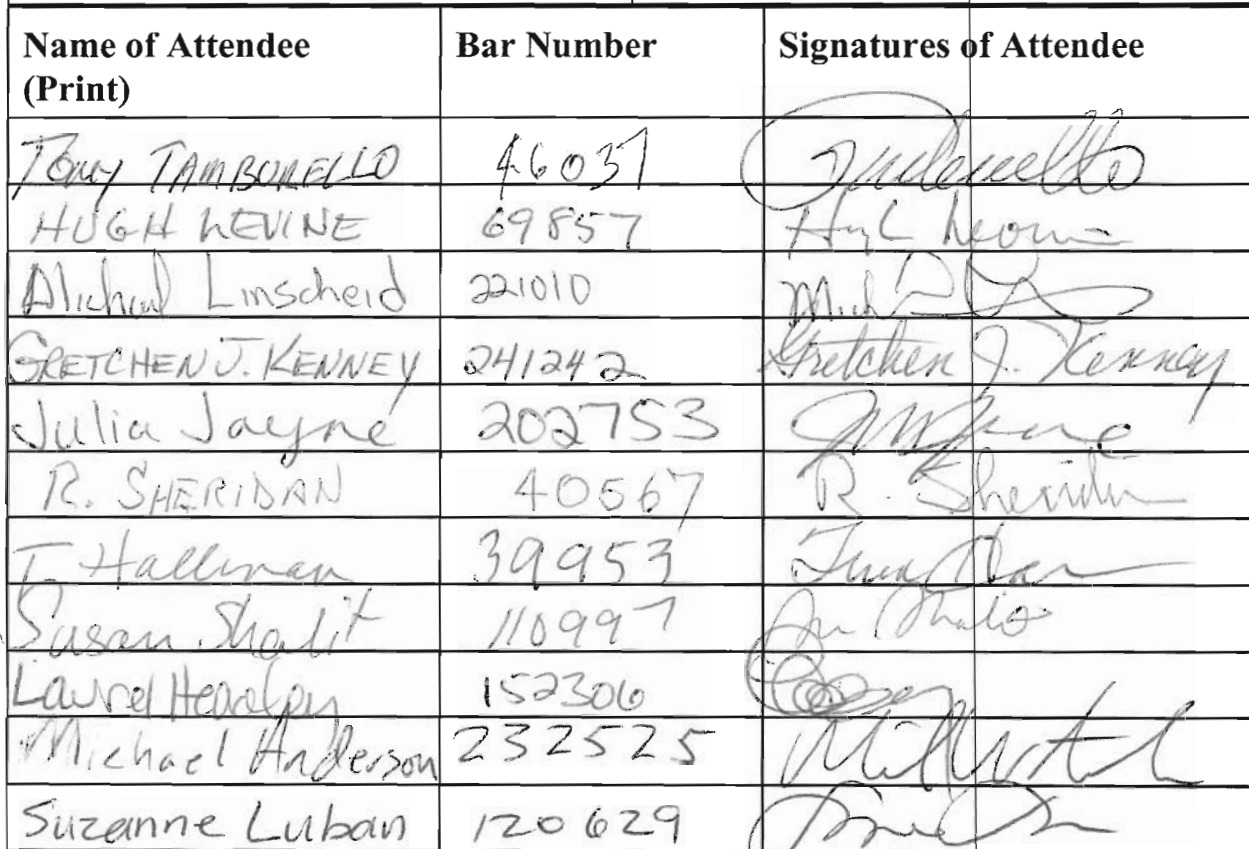 Name of Attendee (Print) Bar Number Signatures of Attendee
TONY TAMBURELLO 46037
HUGH LEVINE 69857
Michael Linscheid 221010
GRETCHEN J. KENNEY 241242 Gretchen J. Kenney
Julia Jayne 202753
R. SHERIDAN 40567 R. Sheridan
T. Hallinan 39953
Susan Shalit 110997
Laurel Headley 152306
Michael Anderson 232525
Suzanne Luban 120629